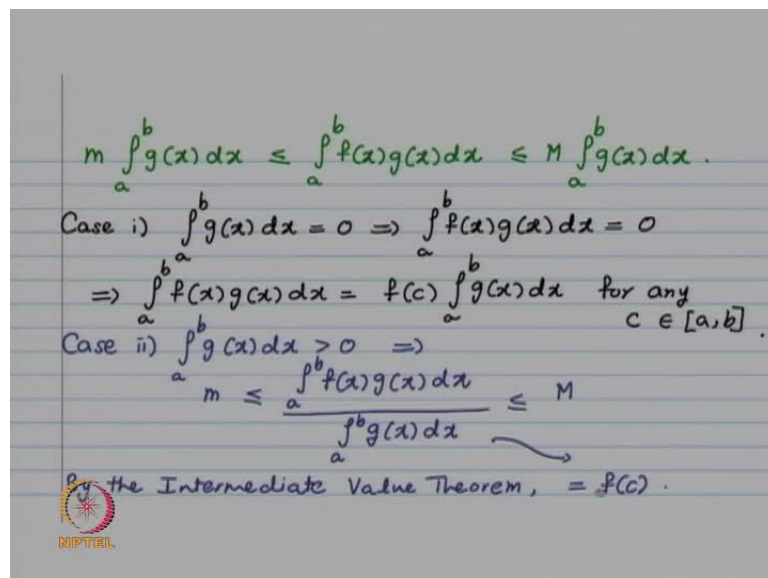 m ∫_a^b g(x) dx ≤ ∫_a^b f(x) g(x) dx ≤ M ∫_a^b g(x) dx .
Case i) ∫_a^b g(x) dx = 0 => ∫_a^b f(x) g(x) dx = 0
=> ∫_a^b f(x) g(x) dx = f(c) ∫_a^b g(x) dx for any
c ∈ [a,b] .
Case ii) ∫_a^b g(x) dx > 0 =>
m ≤ ∫_a^b f(x) g(x) dx / ∫_a^b g(x) dx ≤ M
By the Intermediate Value Theorem, = f(c) .
NPTEL